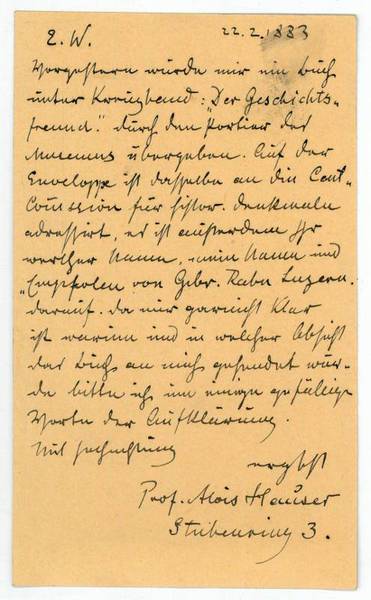 E. W. 22.2.1883
Vorgestern wurde mir ein Buch
unter Kreuzband: „Der Geschichts-
freund." durch den Portier des
Museums übergeben. Auf der
Enveloppe ist dasselbe an die Cent.-
Comission für histor. Denkmale
adressirt, es ist außerdem Ihr
werther Name, mein Name und
„Empfolen von Gebr. Raber Luzern.
darauf. Da mir garnicht klar
ist warum und in welcher Absicht
das Buch an mich gesendet wur-
de bitte ich um einige gefällige
Worte der Aufklärung.
Mit Hochachtung
ergbst
Prof. Alois Hauser
Stubenring 3.